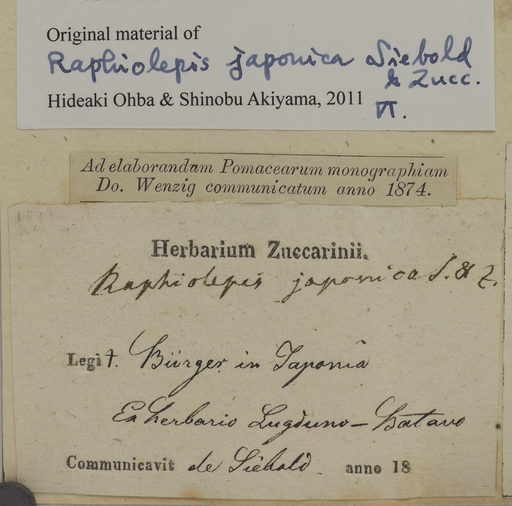 Original material of
Raphiolepis japonica Siebold
& Zucc.
Hideaki Ohba & Shinobu Akiyama, 2011 π.
Ad elaborandam Pomacearum monographiam
Do. Wenzig communicatum anno 1874.
Herbarium Zuccarinii.
Raphiolepis japonica S. & Z.
Legit. Bürger in Japonia
Ex herbario Lugduno-Batavo
Communicavit de Siebold. anno 18